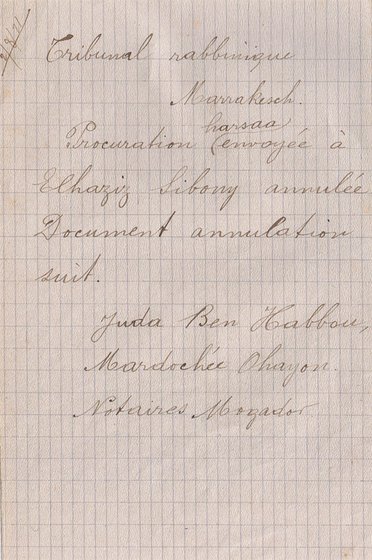 Tribunal rabbinique
Marrakesch.
harsaa
Procuration (envoyée à
Elhaziz Sibony annulée
Document annulation
suit.
Juda Ben Habbou,
Mardochée Ohayon.
Notaires Mogador